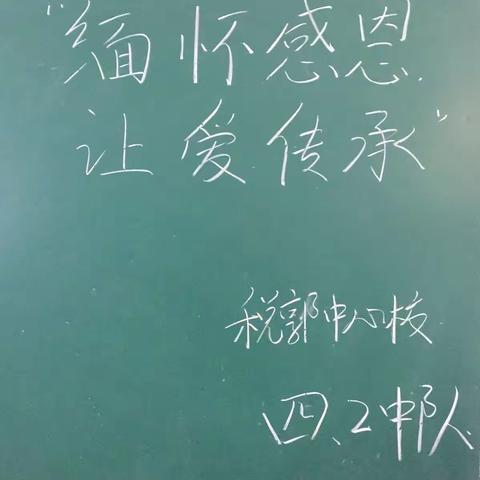 “缅怀感恩.
让爱传承”
税郭中心校
四、2中队.